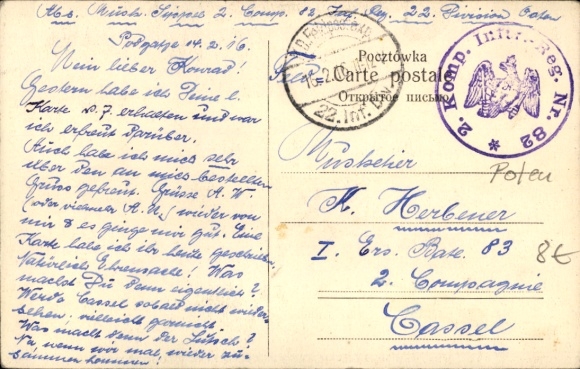 Abs. Musk. 2. Comp. 82. Inf. Reg. 22. Division Osten
14.2.16.
Mein lieber Konrad!
Gestern habe ich Deine l.
Karte No. 7 erhalten und war
ich erfreut darüber.
Auch habe ich mich sehr
über den an mich bestellten
Gruss gefreut. Grüsse A. W.
(oder vielmehr A. H.) wieder von
mir & es ginge mir gut. Eine
Karte habe ich ihr heute geschrieben.
Natürlich Ehrensache! Was
machst Du denn eigentlich?
Werde Cassel sobald nicht wieder
sehen, vielleicht garnicht.
Was macht denn der ?
Na wenn wir mal wieder zu-
sammen kommen!
Pocztówka
Carte postale
Открытое письмо
22. Inf. Div.
2. Komp. Inftr. Reg. Nr. 82 *
Musketier
K. Herbener
I. Ers. Batl. 83
2. Compagnie
Cassel
Polen
8€